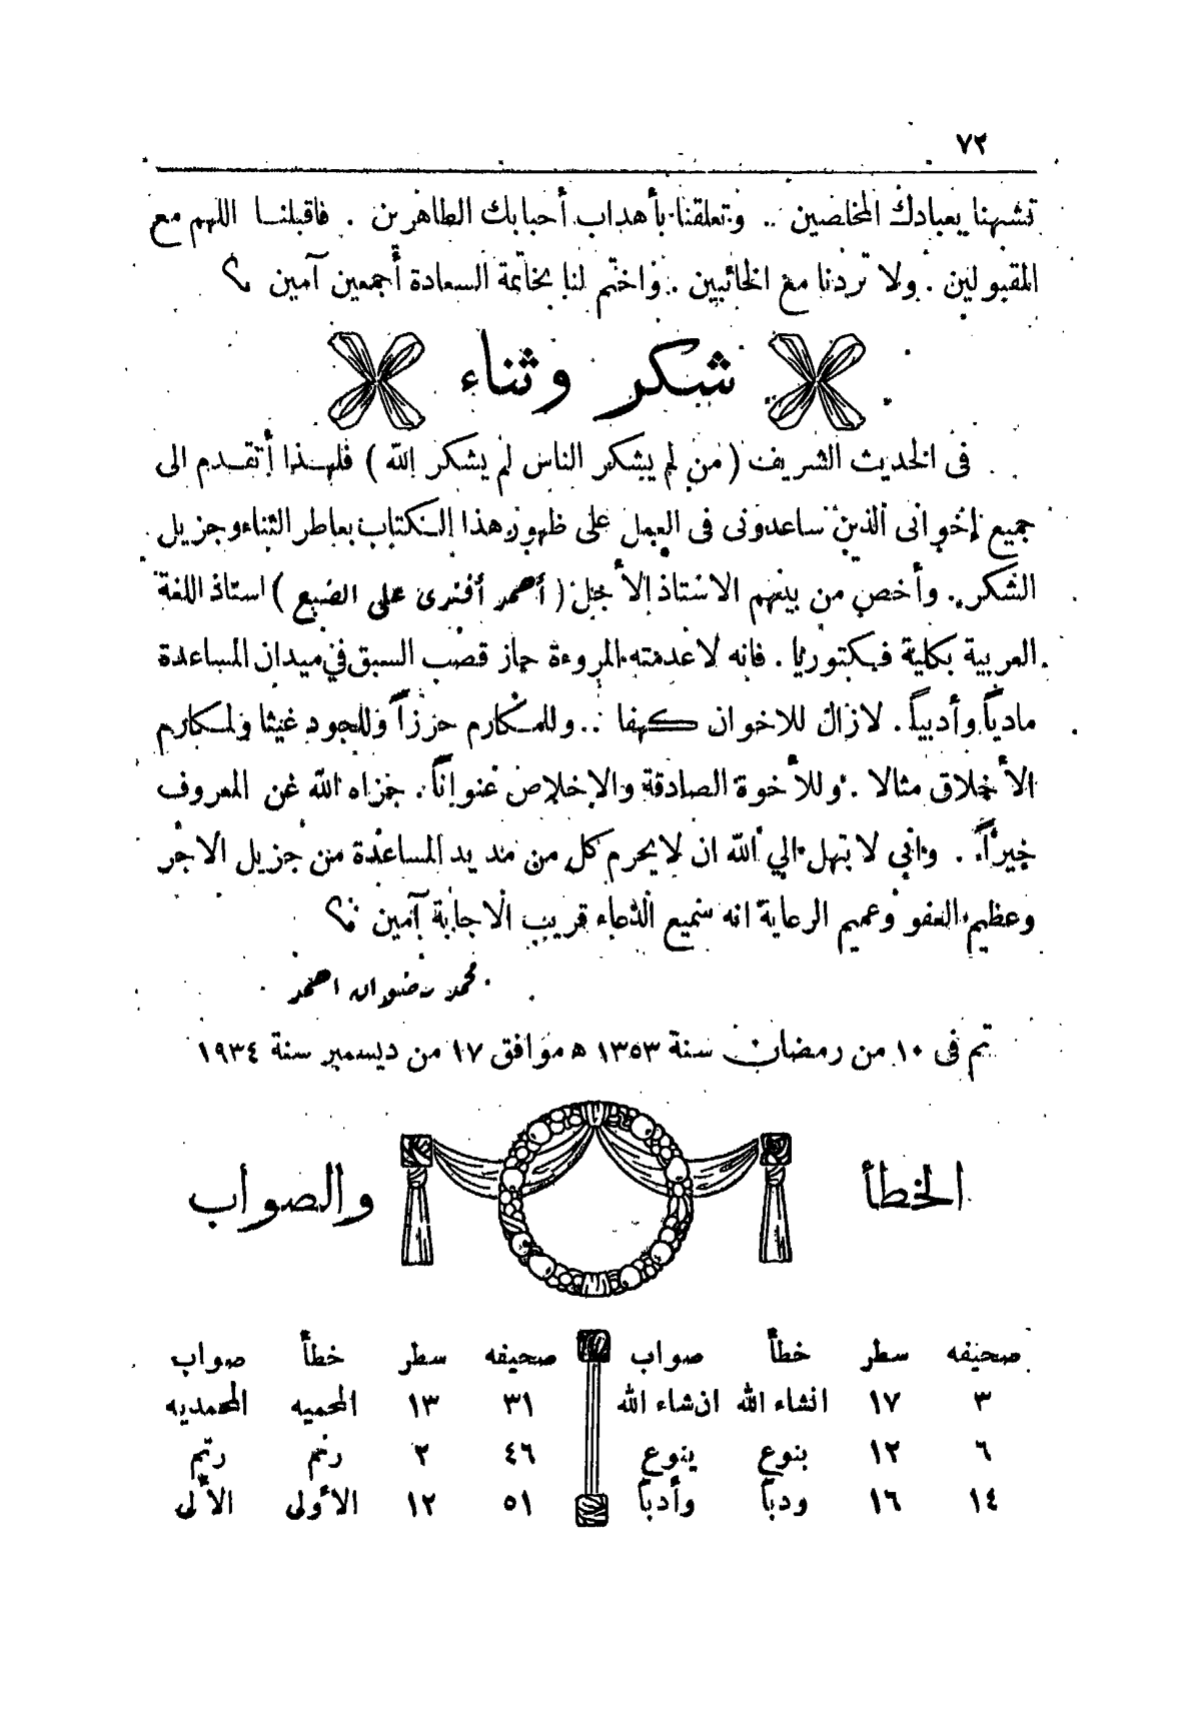 ٧٢
تشبهنا بعبادك المخلصين . وتعلقنا بأهداب أحبابك الطاهرين . فاقبلنا اللهم مع
المقبولين . ولا تردنا مع الخائبين . واختم لنا بخاتمة السعادة أجمعين آمين ؟
شكر وثناء
فى الحديث الشريف ( من لم يشكر الناس لم يشكر الله ) فلهذا أتقدم الى
جميع إخوانى الذين ساعدونى فى العمل على ظهور هذا الكتاب بعاطر الثناء وجزيل
الشكر . وأخص من بينهم الاستاذ الأجل ( أحمد أفندى على الضبع ) استاذ اللغة
العربية بكلية فيكتوريا . فانه لاعدمته المروءة حاز قصب السبق في ميدان المساعدة
مادياً وأدبياً . لازال للاخوان كهفا . وللمكارم حرزاً وللجود غيثا ولمكارم
الأخلاق مثالا . وللأخوة الصادقة والإخلاص عنواناً . جزاه الله عن المعروف
خيراً . وانى لا بتهل الي الله ان لا يحرم كل من مد يد المساعدة من جزيل الاجر
وعظيم العفو وعميم الرعاية انه سميع الدعاء قريب الاجابة آمين ؟
محمد رضوان احمد
تم فى ١٠ من رمضان سنة ١٣٥٣ ه موافق ١٧ من ديسمبر سنة ١٩٣٤
الخطأ والصواب
صحيفه سطر خطأ صواب صحيفه سطر خطأ صواب
٣ ١٧ انشاء الله ان شاء الله ٣١ ١٣ المحميه المحمديه
٦ ١٢ بنوع ينوع ٤٦ ٢ رغم رتم
١٤ ١٦ ودبا وأدبا ٥١ ١٢ الأولى الألى